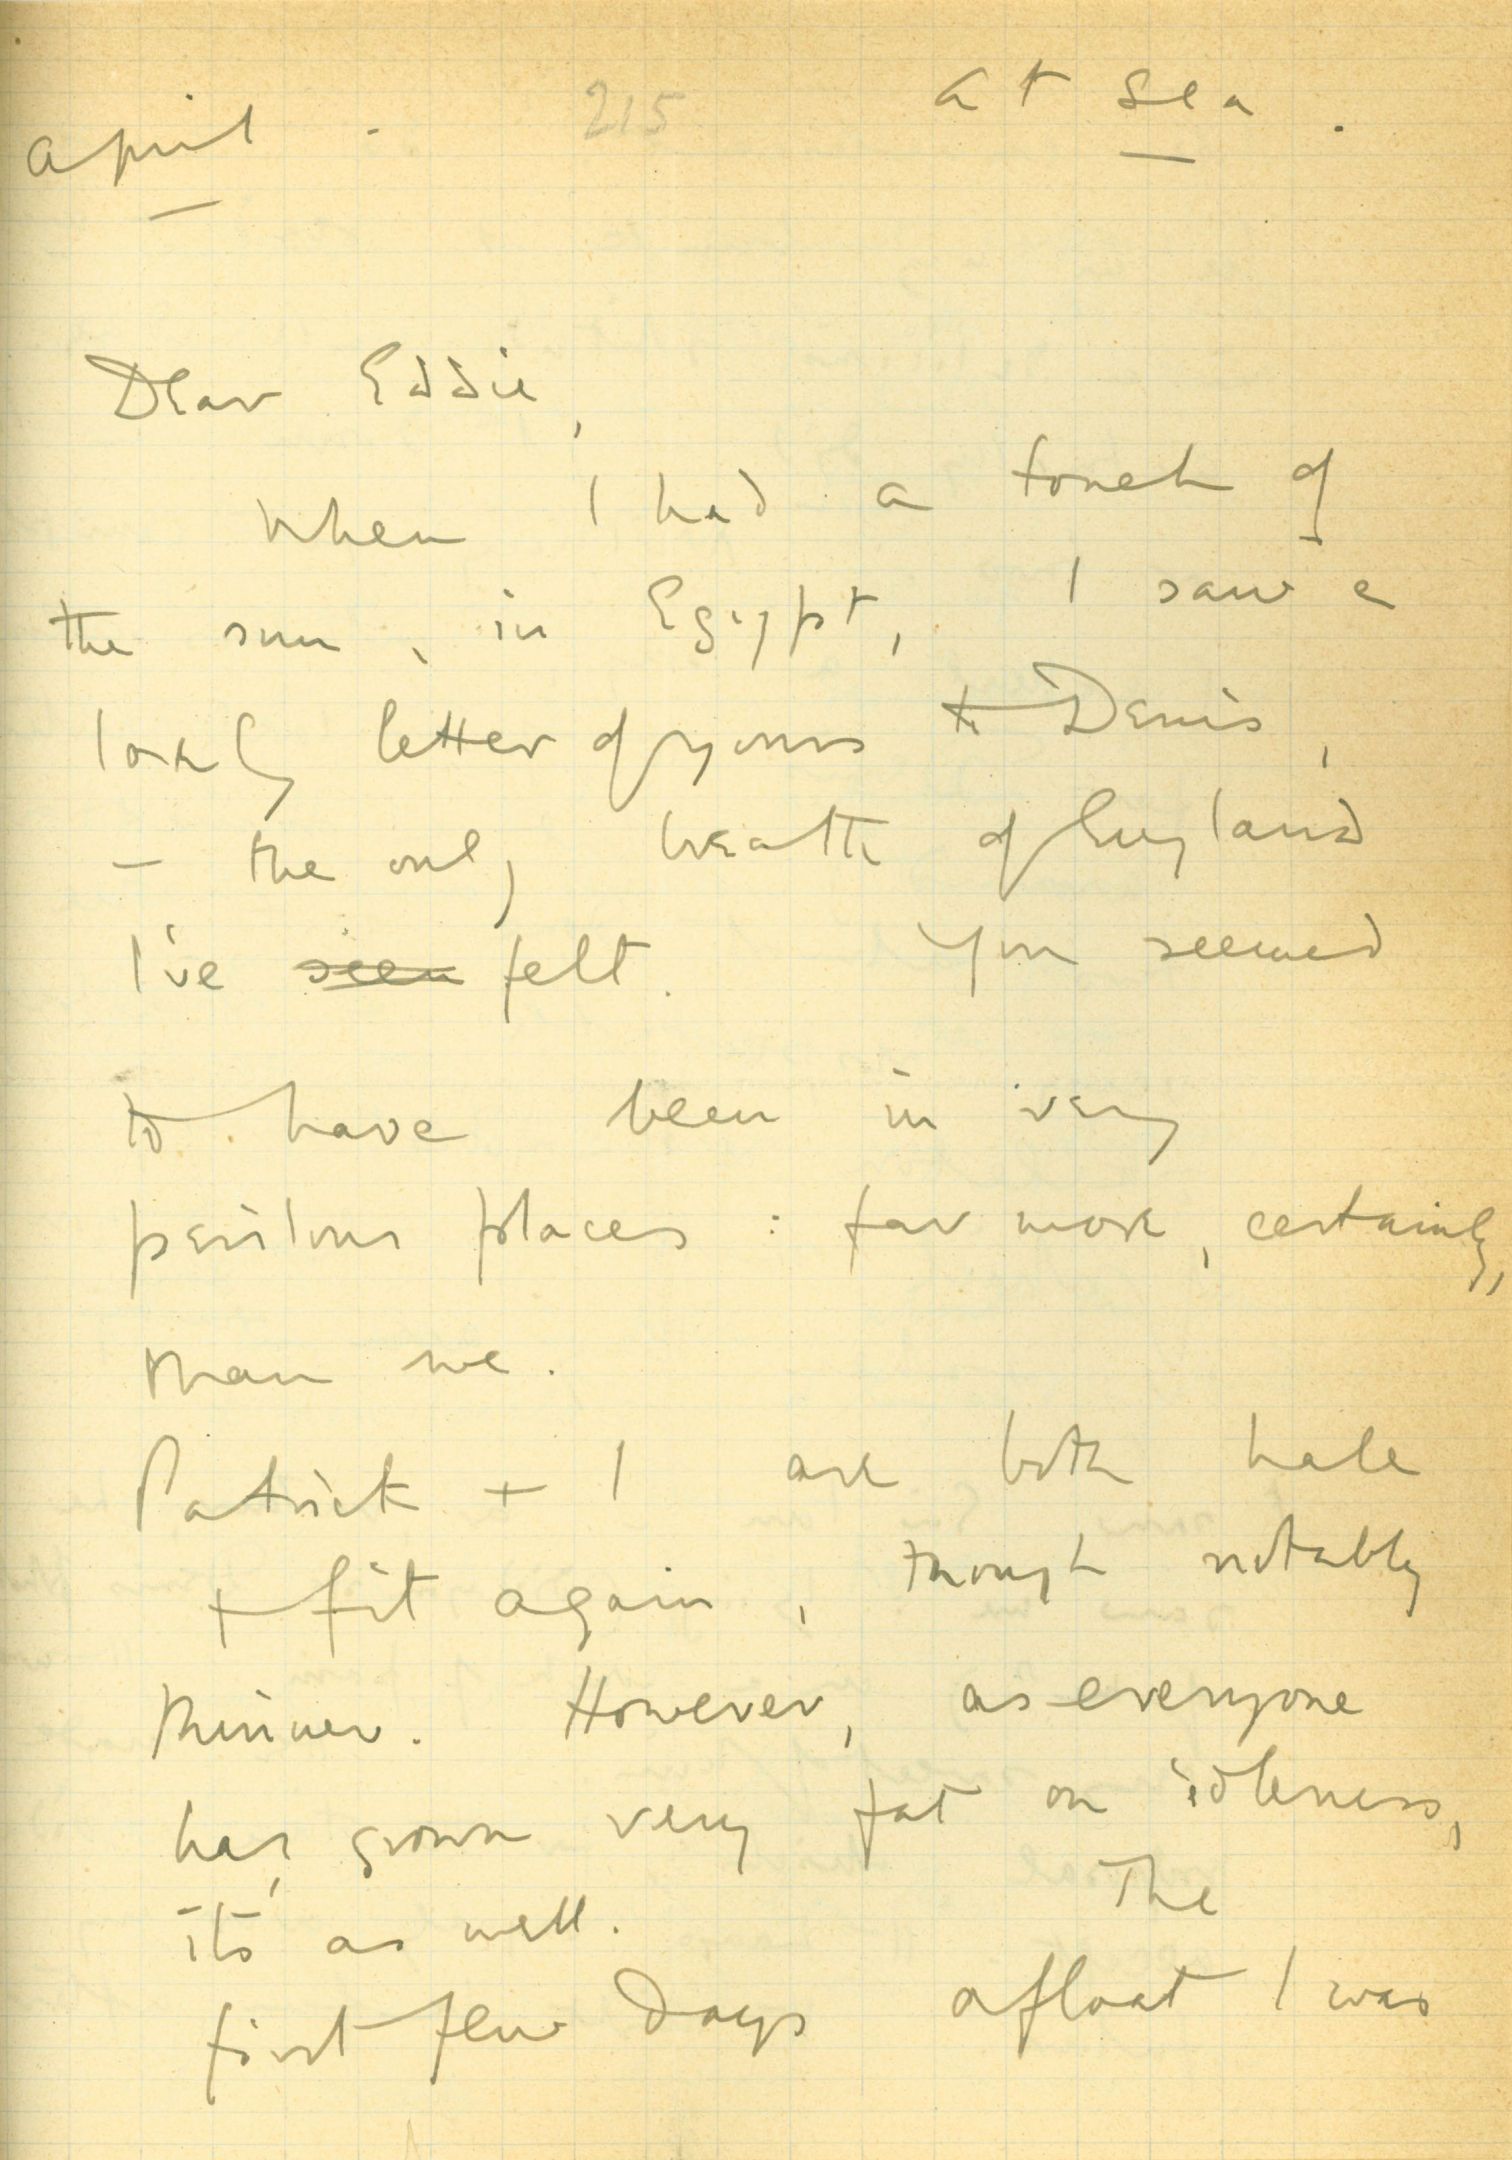 at sea.
April. 215
Dear Eddie,
When I had a touch of
the sun, in Egypt, I saw a
lovely letter of yours to Denis,
– the only breath of England
I've ~~seen~~ felt. You seemed
to have been in very
perilous places : far more, certainly,
than we.
Patrick + I are both hale
+ fit again, though notably
thinner. However, as everyone
has grown very fat on idleness,
its as well. The
first few days afloat I was